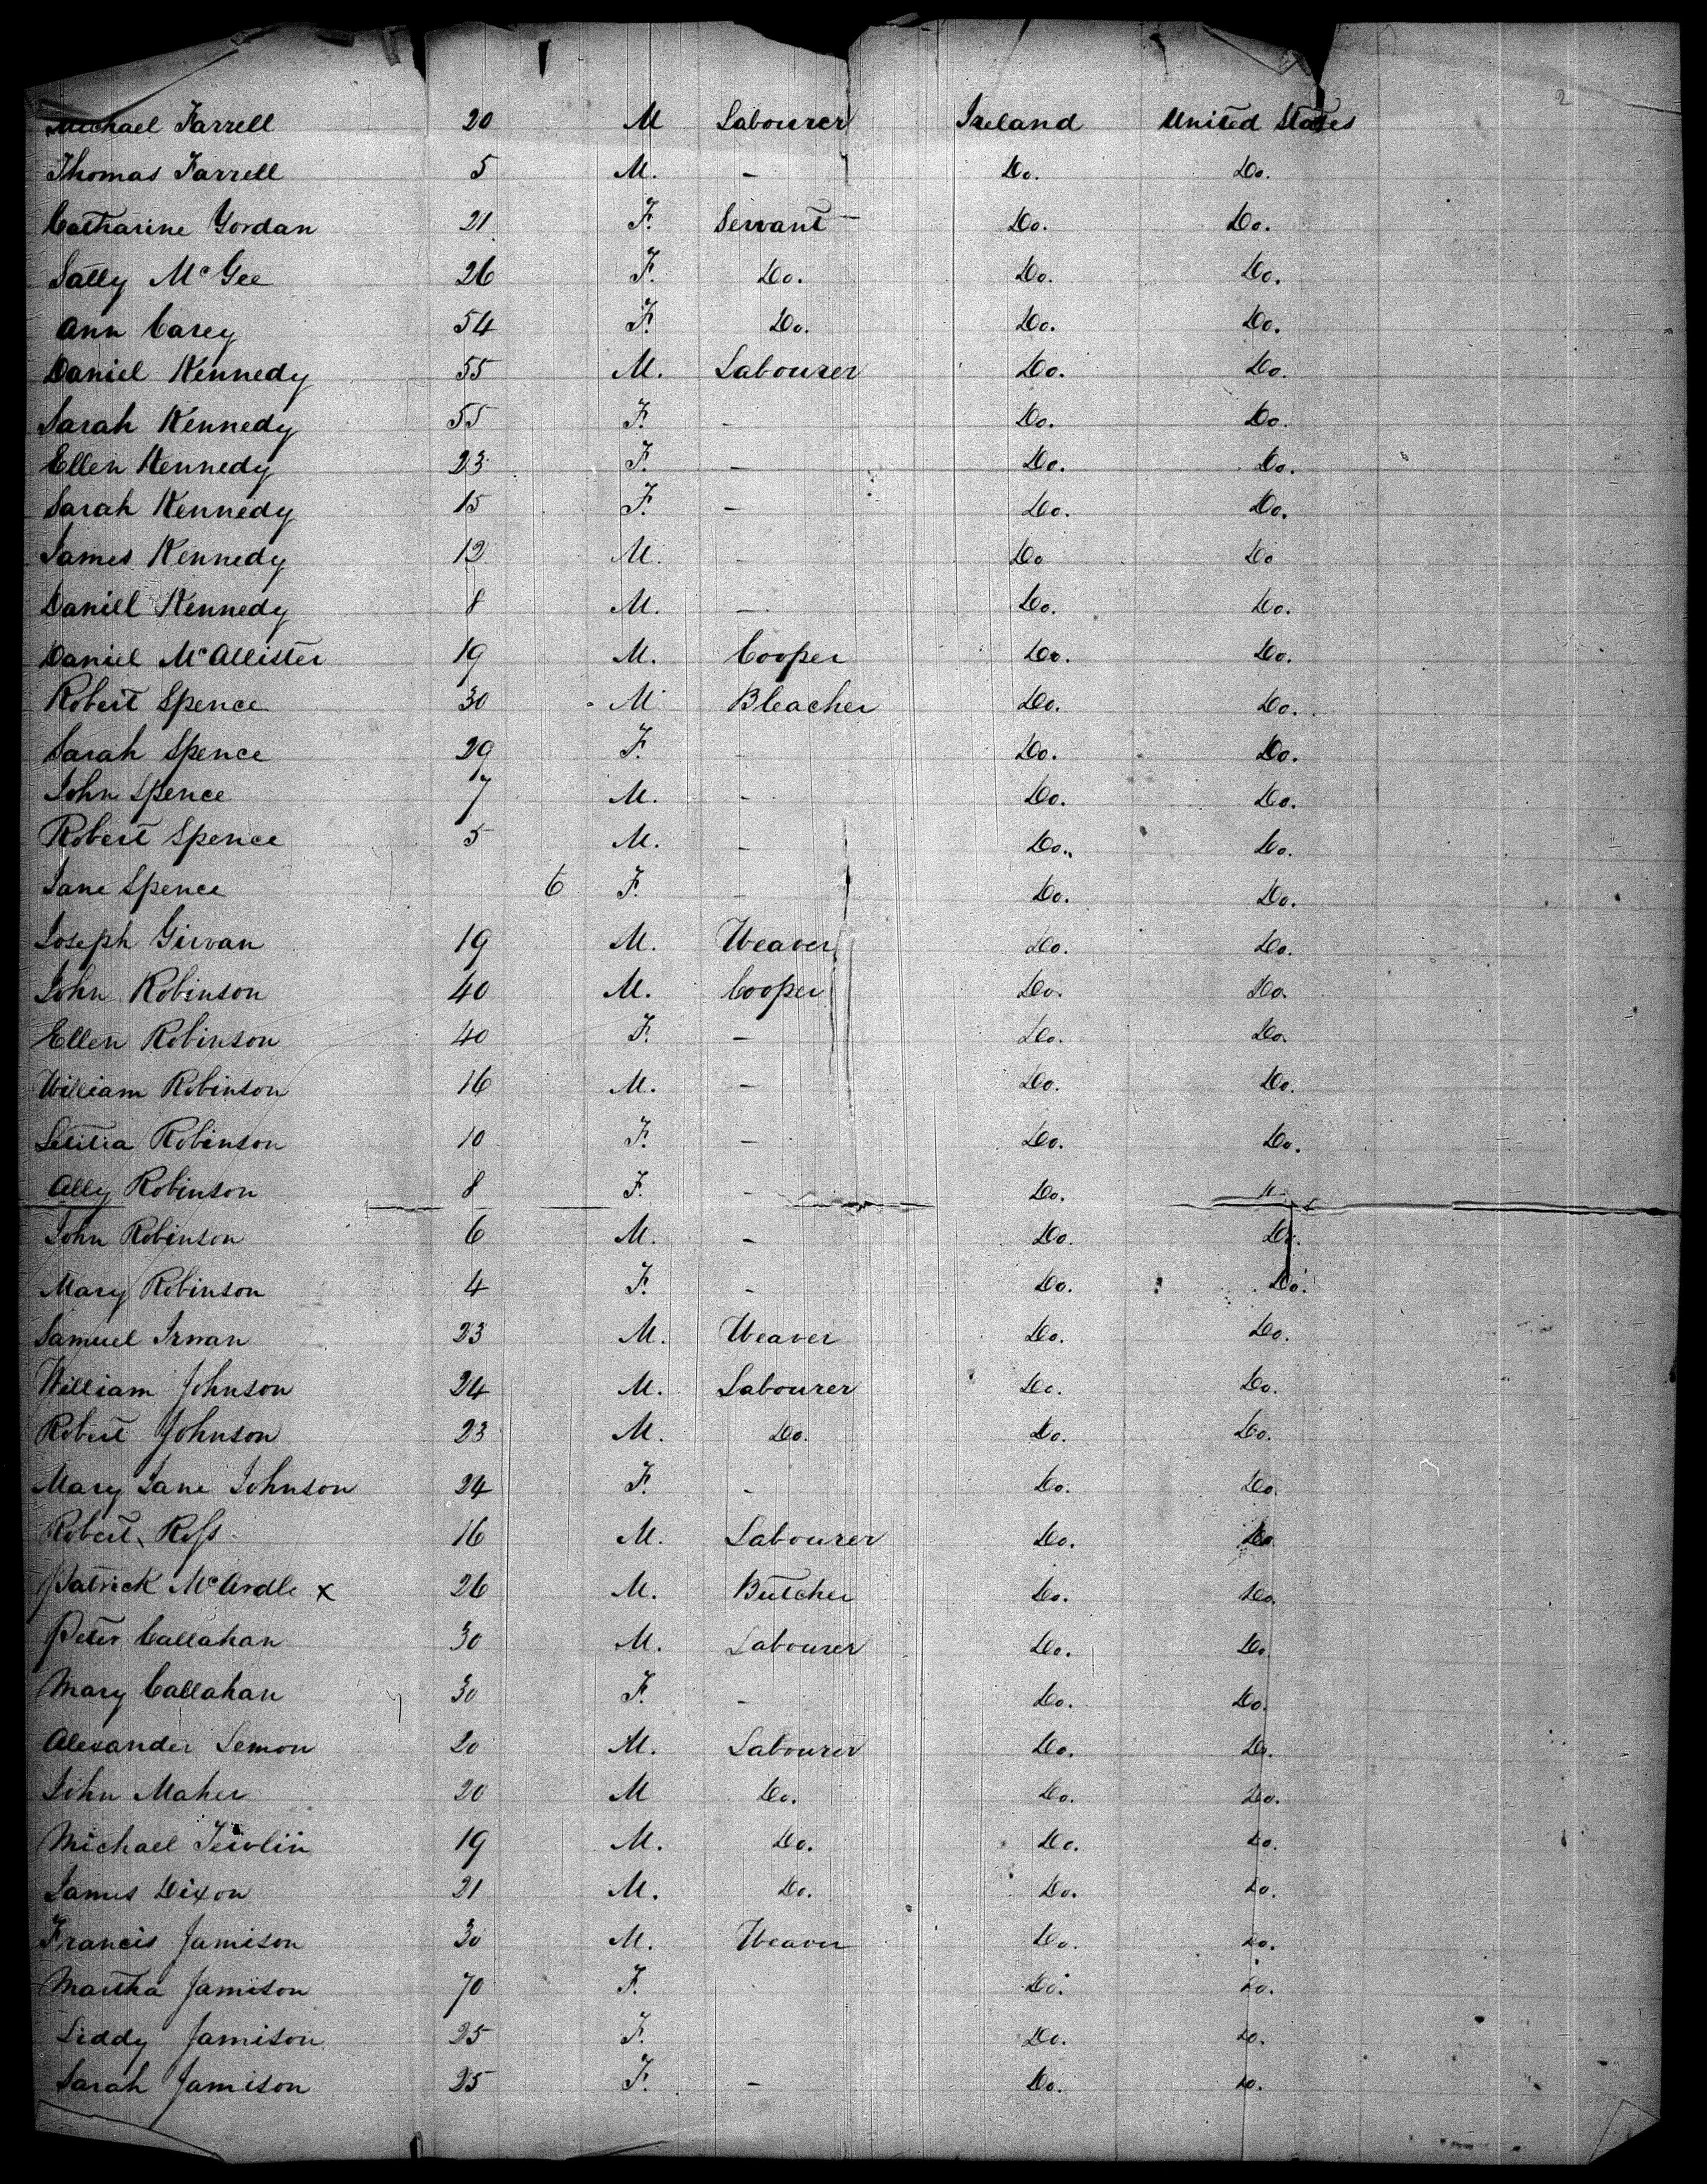 2
Michael Farrell 20 M Labourer Ireland United States
Thomas Farrell 5 M. - Do. Do.
Catharine Yordan 21 F. Servant Do. Do.
Sally McGee 26 F. Do. Do. Do.
Ann Carey 54 F. Do. Do. Do.
Daniel Kennedy 55 M. Labourer Do. Do.
Sarah Kennedy 55 F. - Do. Do.
Ellen Kennedy 23 F. - Do. Do.
Sarah Kennedy 15 F. - Do. Do.
James Kennedy 12 M. - Do Do
Daniel Kennedy 8 M. - Do. Do.
Daniel McAllister 19 M. Cooper Do. Do.
Robert Spence 30 M Bleacher Do. Do.
Sarah Spence 29 F. - Do. Do.
John Spence 7 M. - Do. Do.
Robert Spence 5 M. - Do. Do.
Jane Spence 6 F. - Do. Do.
Joseph Girvan 19 M. Weaver Do. Do.
John Robinson 40 M. Cooper Do. Do.
Ellen Robinson 40 F. - Do. Do.
William Robinson 16 M. - Do. Do.
Letitia Robinson 10 F. - Do. Do.
Ally Robinson 8 F. - Do.
John Robinson 6 M. - Do. Do.
Mary Robinson 4 F. - Do. Do.
Samuel 23 M. Weaver Do. Do.
William Johnson 24 M. Labourer Do. Do.
Robert Johnson 23 M. Do. Do. Do.
Mary Jane Johnson 24 F. - Do. Do.
Robert Ross 16 M. Labourer Do. Do.
Patrick McArdle x 26 M. Butcher Do. Do.
Peter Callahan 30 M. Labourer Do. Do.
Mary Callahan 30 F. - Do. Do.
Alexander Lemon 20 M. Labourer Do. Do.
John Maher 20 M Do. Do. Do.
Michael 19 M. Do. Do. Do.
James Dixon 21 M. Do. Do. Do.
Francis Jamison 30 M. Weaver Do. Do.
Martha Jamison 70 F. Do. Do.
Liddy Jamison 25 F. - Do. Do.
Sarah Jamison 25 F. - Do. Do.